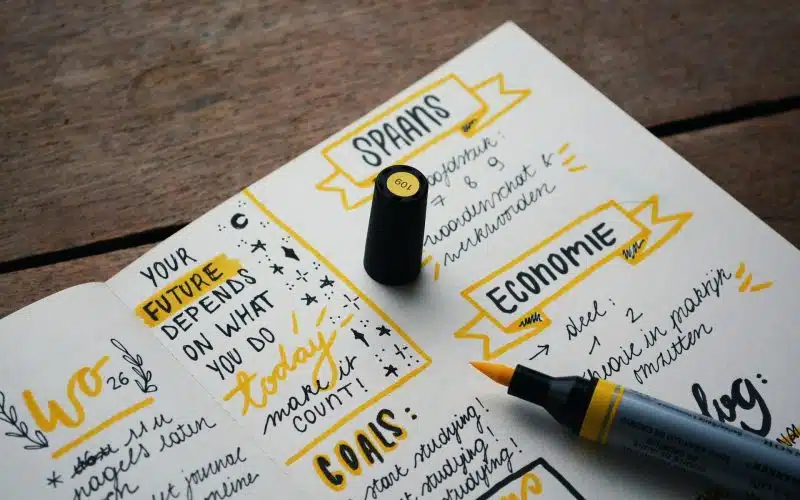 Wo 26
11 u
nagels laten
let journal
YOUR
FUTURE
DEPENDS
ON WHAT
YOU DO
today
make it
COUNT!
GOALS:
start studying!
start studying!
studying!
SPAANS
oofdstuk:
7 8 9
woordenschat &
werkwoorden
109
ECONOMIE
→ deel:
1 2
theorie in praktijk
omzetten